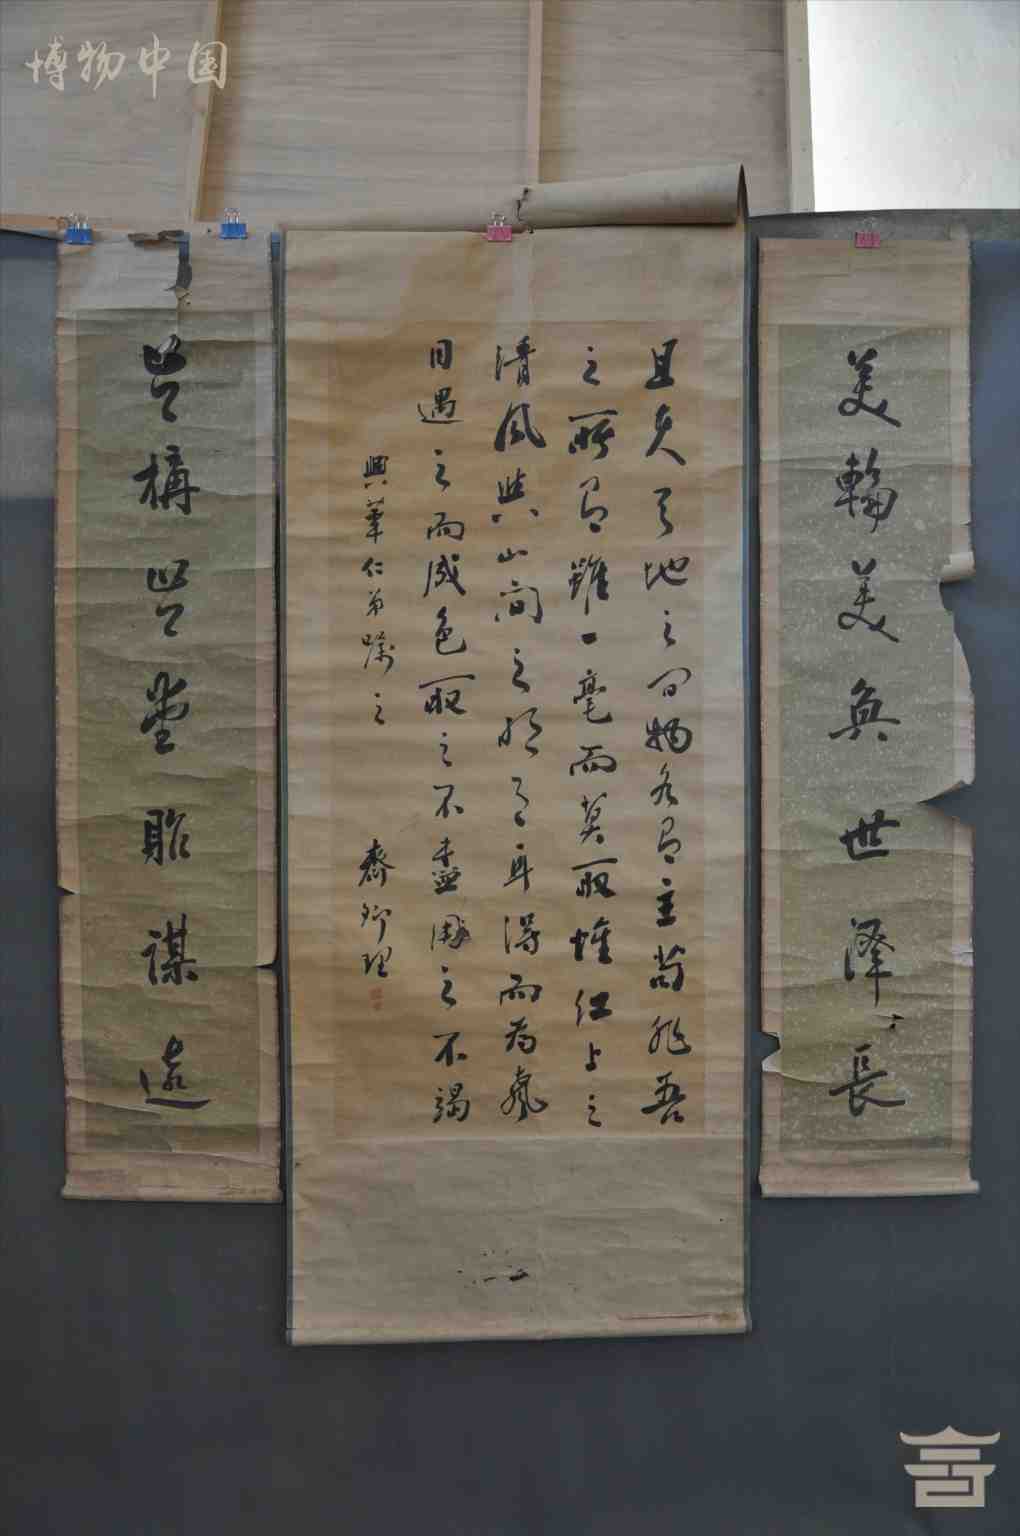 博物中国
美輪美奐世澤長
且夫天地之間物各有主苟非吾
之所有雖一毫而莫取惟江上之
清風與山間之明月耳得而為聲
目遇之而成色取之不盡用之不竭
興華仁弟囑之
肯構肯堂貽謀遠